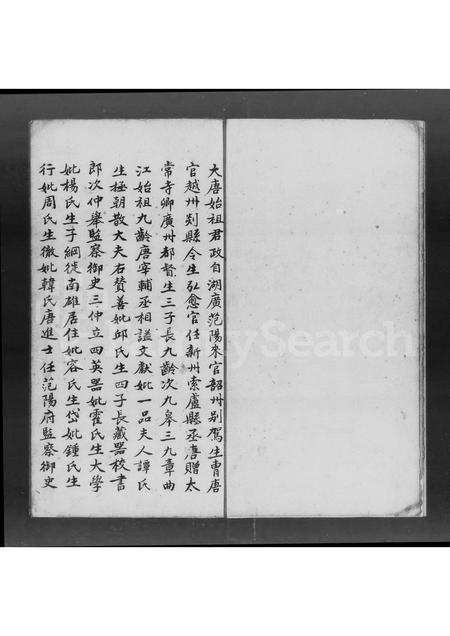 大唐始祖君政自湖廣范陽來官韶州别駕生胄唐
官越州剡縣令生弘愈官任新州索盧縣丞唐贈太
常寺卿廣州都督生三子長九齡次九皋三九章曲
江始祖九齡唐宰輔丞相謚文獻妣一品夫人譚氏
生極朝散大夫右贊善妣邱氏生四子長藏器校書
郎次仲舉監察御史三仲立四英器妣霍氏生大學
妣楊氏生子綱徙南雄居住妣容氏生岱妣鍾氏生
行妣周氏生徵妣韓氏唐進士任范陽府監察御史
FamilySearch